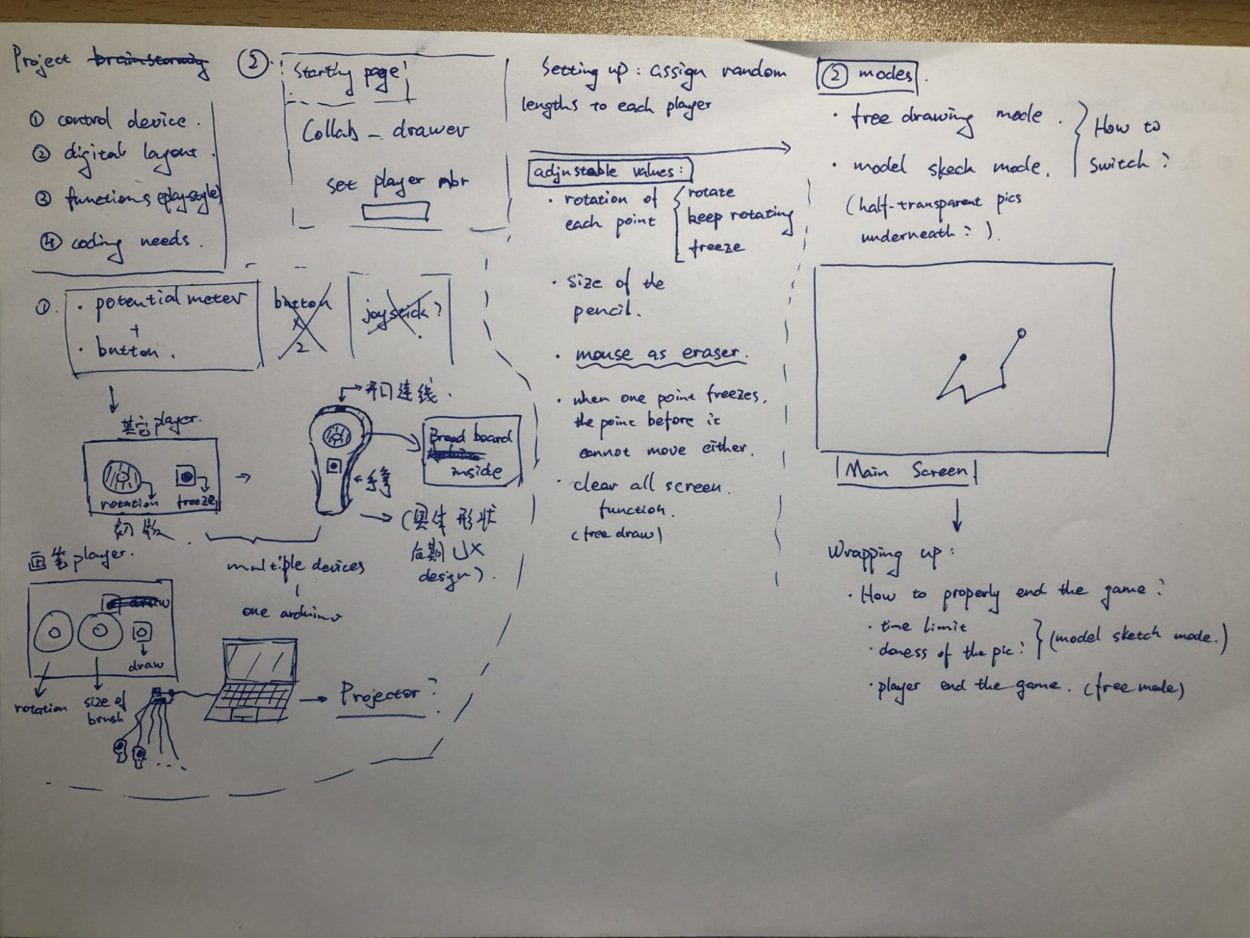 Project brainstorming
① control device.
② digital layout.
③ functions (play-style)
④ coding needs.
②
Starting page
Collab_drawer
set player nbr
Setting up: assign random
lengths to each player
adjustable values:
· rotation of
each point
rotate
keep rotating
freeze
· size of the
pencil.
· mouse as eraser.
· when one point freezes,
the point before it
cannot move either.
· clear all screen
function.
(free draw)
② modes.
· free drawing mode.
· model skech mode.
(half-transparent pics
underneath?).
How to
switch?
Main Screen
Wrapping up:
· How to properly end the game?
· time limit
· doness of the pic?
(model sketch mode.)
· player end the game. (free mode)
①.
· potential meter
+
· button.
button
×
2
joystick?
其它player.
rotation
freeze
初版
开口连线.
Bread board
inside
手拿
(具体形状
后期UX
design).
multiple devices
one arduino
画笔player.
draw
draw
rotation
size of
brush
Projector?